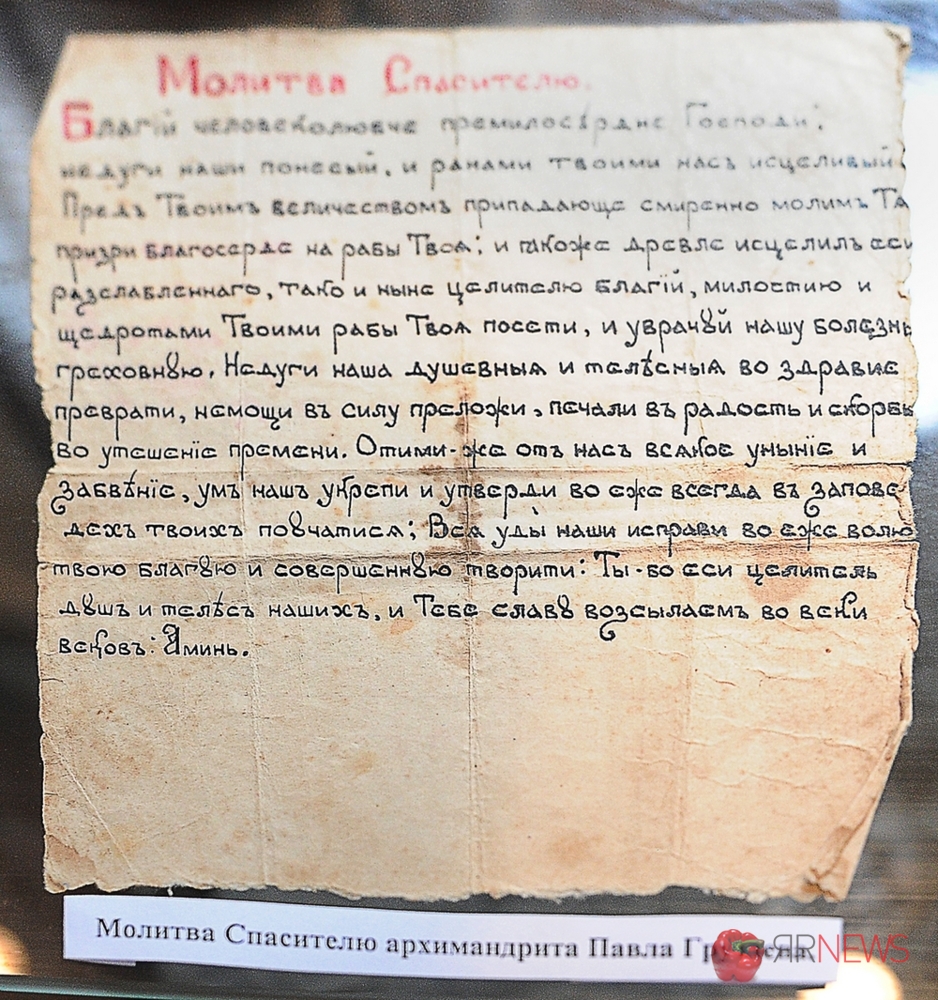 Молитва Спасителю.
Благій человеколюбче премилосердне Господи;
недуги наши понесый, и ранами твоими насъ исцеливый
Предъ Твоимъ величествомъ припадающе смиренно молимъ Тѧ
призри благосерде на рабы Твоѧ; и ѩкоже древле исцелилъ еси
разслабленнаго, тако и ныне целителю благій, милостию и
щедротами Твоими рабы Твоѧ посети, и уврачȣй нашу болезнь
греховнȣю. Недуги наша душевныѧ и телѣсныѧ во здравие
преврати, немощи въ силу преложи, печали въ радость и скорбь
во утешеніе премени. Отими-же отъ насъ всѧкое уныніе и
забвѣніе, умъ нашъ укрепи и утверди во еже всегда въ запове-
дехъ твоихъ поȣчатисѧ; Всѧ уды наши исправи во еже волю
твою благȣю и совершеннȣю творити: Ты-бо еси целитель
дȣшъ и телѣсъ нашихъ, и Тебе славȣ возсылаемъ во веки
вековъ: Аминь.
Молитва Спасителю архимандрита Павла
ЯRNEWS